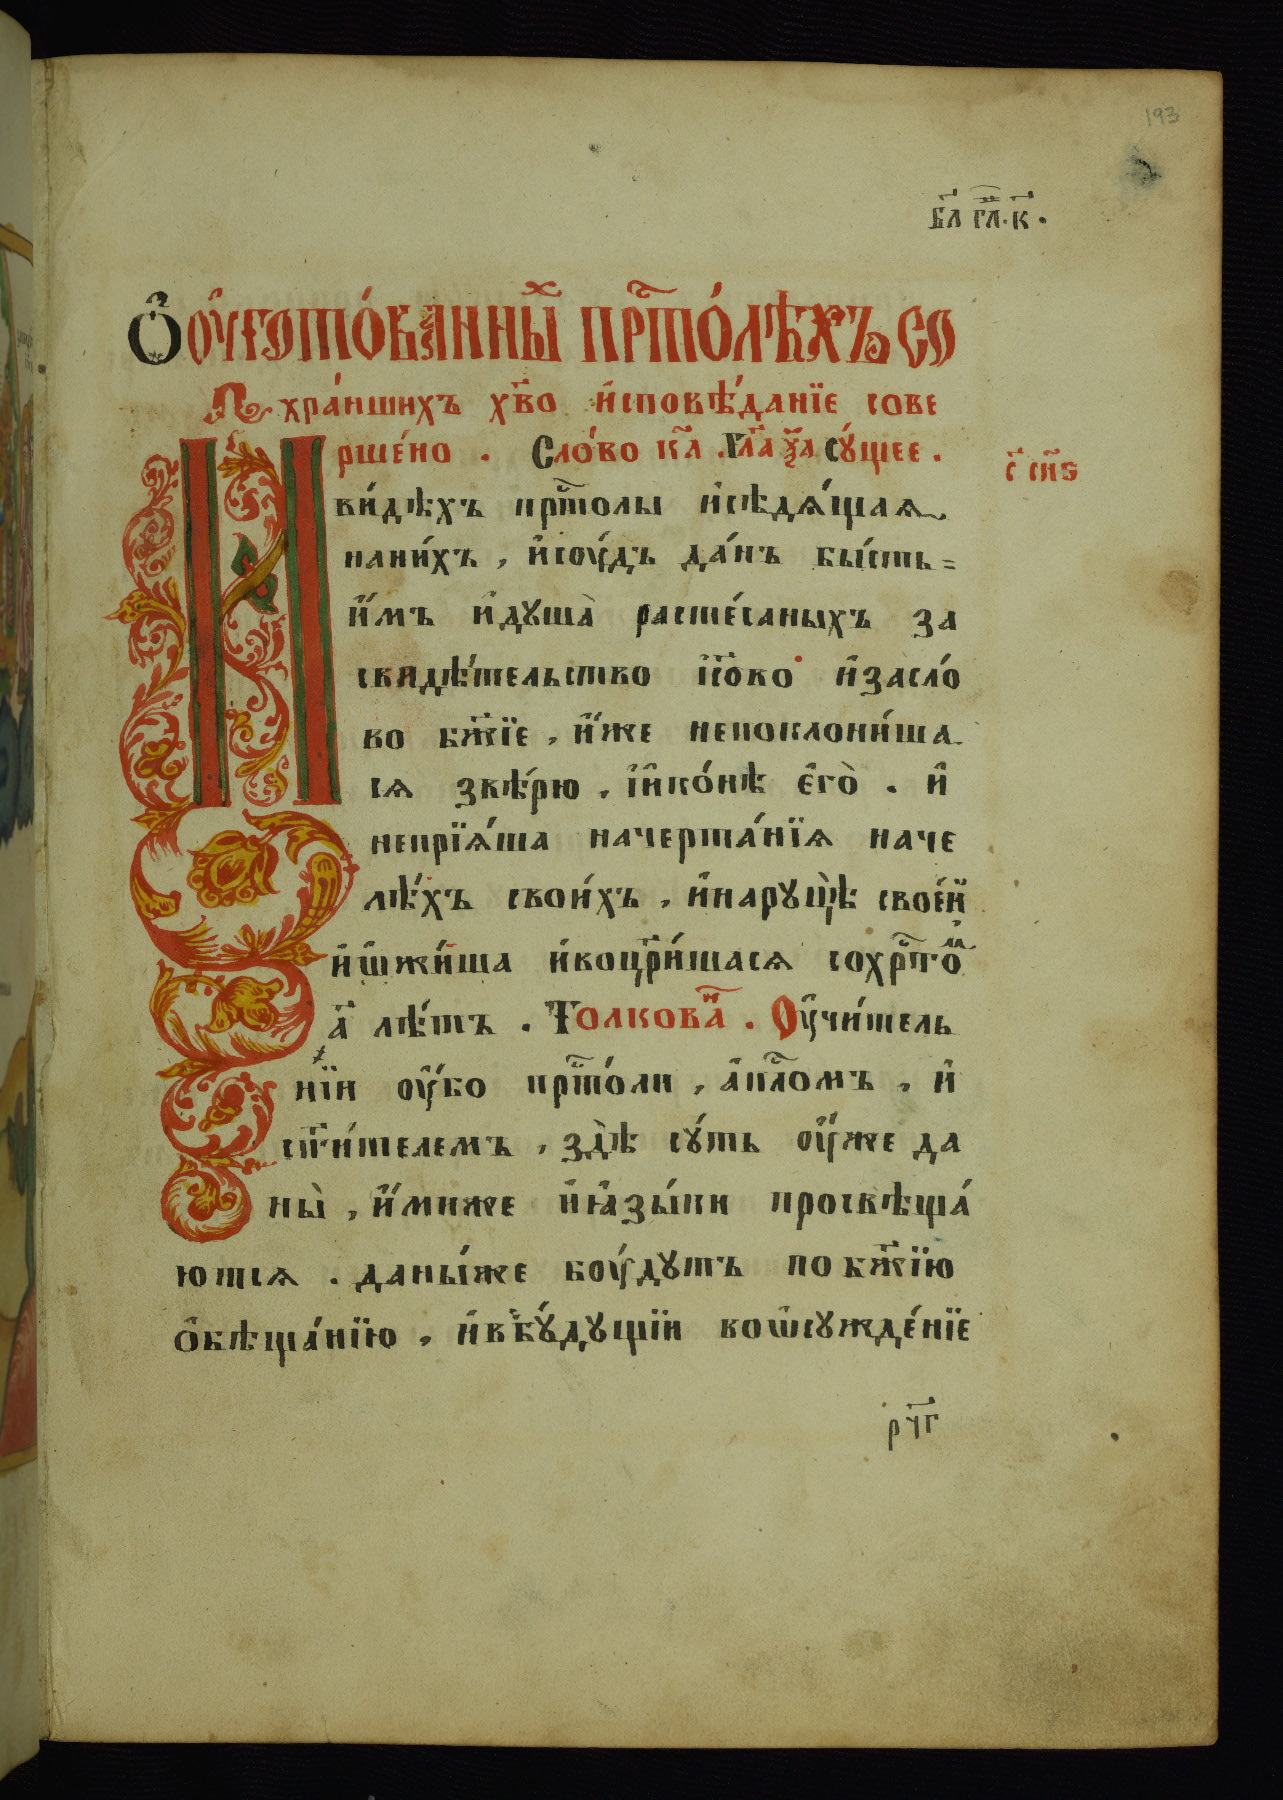 193
в҃л гл҃. к҃.
Ѻ҆ ᲂу҆гото́ванныⷯ прⷭ҇то́лѣхъ со
хра́ншихъ хв҃о и҆сповѣ́данїе сове
рше́но . Сло́во к҃а . Глава̀ ѯ҃а сꙋ́щее .
с҃т сн҃ѕ
И ви́дѣхъ прⷭ҇толы и҆сѣдѧ́щаѧ
нани́хъ , и҆сᲂу́дъ да́нъ бы́сть =
и҆̀мъ и҆дꙋша̀ расте́саныхъ за
свидѣ́тельство і҆со҃во и҆засло́
во бж҃їе , и҆̀же непоклони́ша
сѧ звѣ́рю . і҆и҆ко́нѣ є҆гѡ̀ . и҆
непрїѧ́ша начерта́нїѧ наче
лѣ́хъ свои́хъ , и҆нарꙋцѣ̀ свое́й
и҆ѡ҆жи́ша и҆воцр҃и́шасѧ сохрⷭ҇то́ⷨ
а҃ лѣ́тъ . Толковаⷩ҇ . Ѹ҆чи́тель
нїи ᲂу҆́бо прⷭ҇то́ли , а҆пⷭ҇ломъ , и҆
ст҃и́телемъ , здѣ̀ сꙋ́ть ᲂу҆́же да
ны̀ , и҆́миже и҆ꙗ҆зы́ки просвѣща́
ютсѧ . даны́же бᲂу́дꙋтъ по бж҃їю
ѻ҆бѣща́нїю , и҆в̾бꙋ́дꙋщїи воѿсꙋжде́нїе
рч҃г